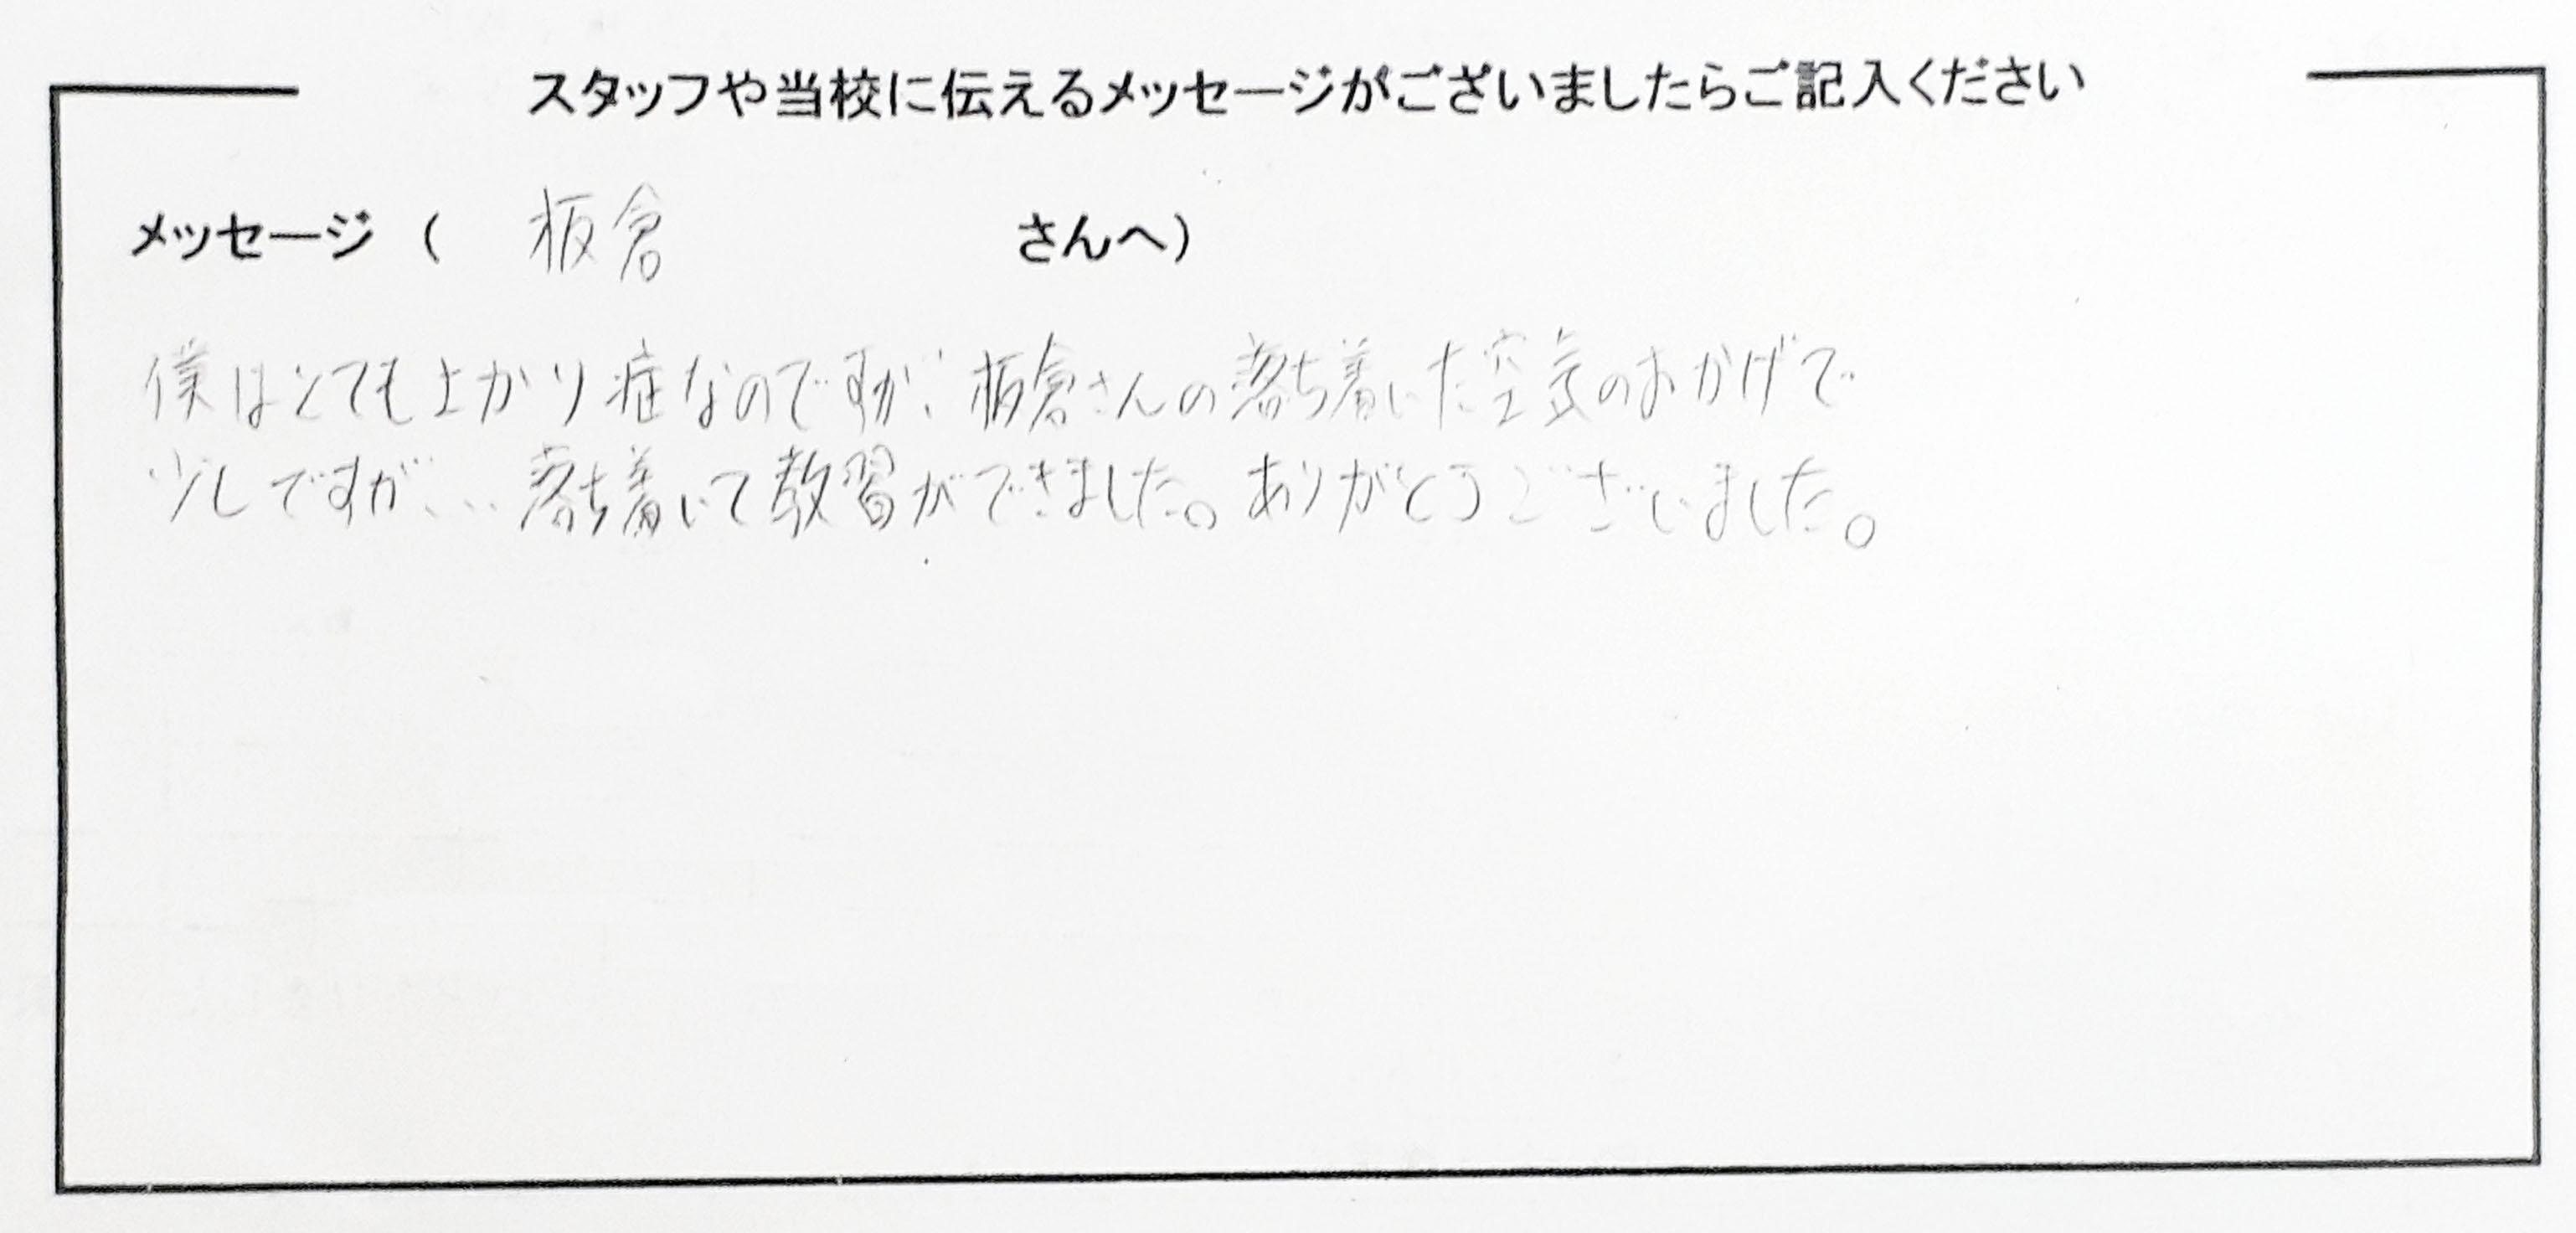 スタッフや当校に伝えるメッセージがございましたらご記入ください
メッセージ ( 板倉 さんへ)
僕はとても上がり症なのですが、板倉さんの落ち着いた空気のおかげで
少しですが、…落ち着いて教習ができました。ありがとうございました。